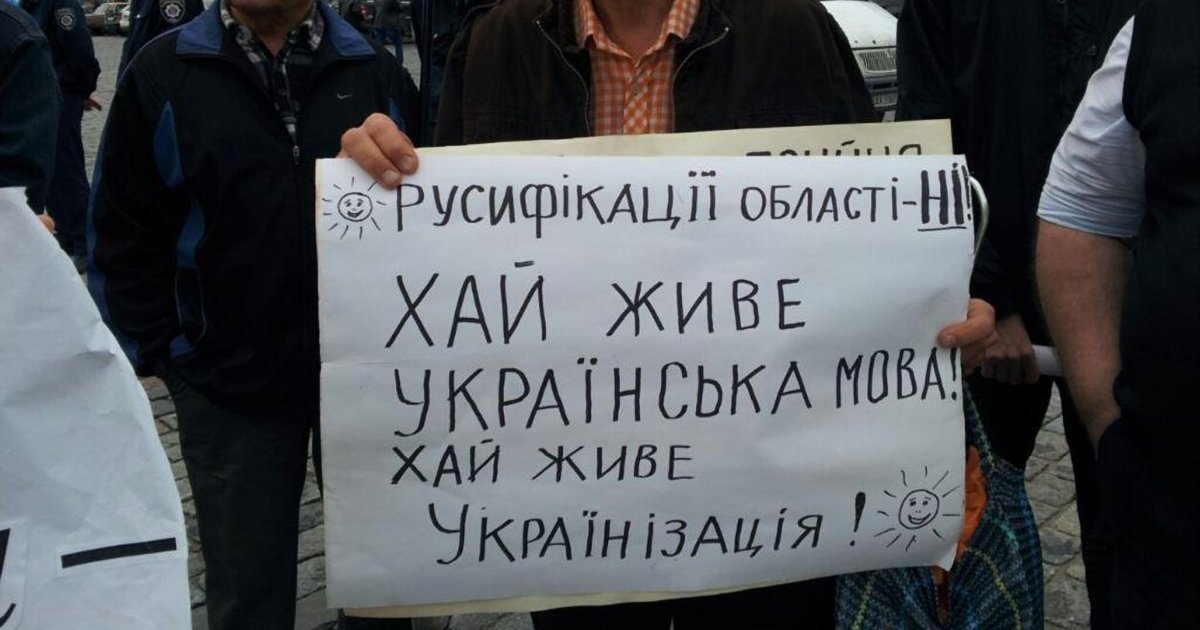 РУСИФІКАЦІЇ ОБЛАСТІ-НІ!
ХАЙ ЖИВЕ
УКРАЇНСЬКА МОВА!
ХАЙ ЖИВЕ
УКРАЇНІЗАЦІЯ!